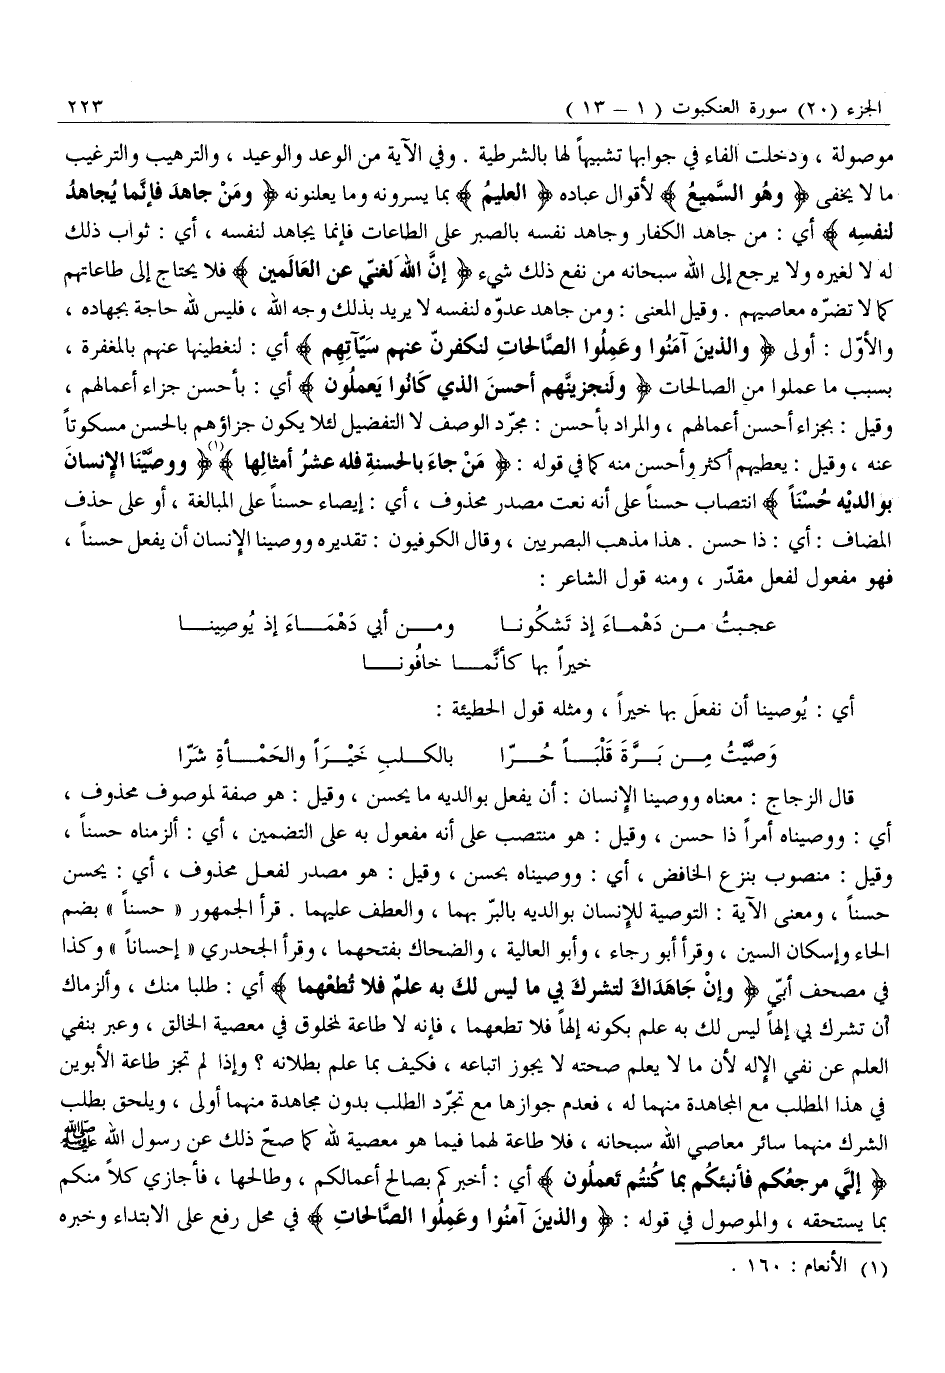 الجزء (٢٠) سورة العنكبوت ( ١ - ١٣ ) ٢٢٣
موصولة ، ودخلت الفاء في جوابها تشبيهاً لها بالشرطية . وفي الآية من الوعد والوعيد ، والترهيب والترغيب
ما لا يخفى ﴿ وهُو السَّميعُ ﴾ لأقوال عباده ﴿ العليمُ ﴾ بما يسرونه وما يعلنونه ﴿ ومَنْ جاهدَ فإنَّما يُجاهدُ
لنفسِه ﴾ أي : من جاهد الكفار وجاهد نفسه بالصبر على الطاعات فإنما يجاهد لنفسه ، أي : ثواب ذلك
له لا لغيره ولا يرجع إلى الله سبحانه من نفع ذلك شيء ﴿ إنَّ اللهَ لغنيّ عن العَالَمين ﴾ فلا يحتاج إلى طاعاتهم
كما لا تضرّه معاصيهم . وقيل المعنى : ومن جاهد عدوّه لنفسه لا يريد بذلك وجه الله ، فليس لله حاجة بجهاده ،
والأوّل : أولى ﴿ والذينَ آمَنُوا وعَمِلُوا الصَّالحاتِ لنكفرنّ عنهم سَيّآتِهم ﴾ أي : لنغطينها عنهم بالمغفرة ،
بسبب ما عملوا من الصالحات ﴿ ولَنجزينَّهم أحسنَ الذي كَانُوا يَعملُون ﴾ أي : بأحسن جزاء أعمالهم ،
وقيل : بجزاء أحسن أعمالهم ، والمراد بأحسن : مجرّد الوصف لا التفضيل لئلا يكون جزاؤهم بالحسن مسكوتاً
عنه ، وقيل : يعطيهم أكثر وأحسن منه كما في قوله : ﴿ مَنْ جاءَ بالحسنةِ فله عشرُ أمثالِها ﴾(١) ﴿ ووصَّيْنَا الإنسانَ
بوالديْه حُسْنَاً ﴾ انتصاب حسناً على أنه نعت مصدر محذوف ، أي : إيصاء حسناً على المبالغة ، أو على حذف
المضاف : أي : ذا حسن . هذا مذهب البصريين ، وقال الكوفيون : تقديره ووصينا الإنسان أن يفعل حسناً ،
فهو مفعول لفعل مقدّر ، ومنه قول الشاعر :
عجبتُ مـن دَهْماءَ إذ تَشكُونـا ومـن أبي دَهْمَـاءَ إذ يُوصِينـا
خيراً بها كأنَّمـا خافُونـا
أي : يُوصينا أن نفعلَ بها خيراً ، ومثله قول الحطيئة :
وَصَّيْتُ مِـن بَـرَّةَ قَلْبَـاً حُـرّا بالكـلبِ خَيْـرَاً والحَمْـأةِ شَرّا
قال الزجاج : معناه ووصينا الإنسان : أن يفعل بوالديه ما يحسن ، وقيل : هو صفة لموصوف محذوف ،
أي : ووصيناه أمراً ذا حسن ، وقيل : هو منتصب على أنه مفعول به على التضمين ، أي : ألزمناه حسناً ،
وقيل : منصوب بنزع الخافض ، أي : ووصيناه بحسن ، وقيل : هو مصدر لفعل محذوف ، أي : يحسن
حسناً ، ومعنى الآية : التوصية للإنسان بوالديه بالبرّ بهما ، والعطف عليهما . قرأ الجمهور « حسناً » بضم
الحاء وإسكان السين ، وقرأ أبو رجاء ، وأبو العالية ، والضحاك بفتحهما ، وقرأ الجحدري « إحساناً » وكذا
في مصحف أبيّ ﴿ وإنْ جَاهَدَاكَ لتشركَ بي ما ليس لكَ به علمٌ فلا تُطعْهما ﴾ أي : طلبا منك ، وألزماك
أن تشرك بي إلهاً ليس لك به علم بكونه إلهاً فلا تطعهما ، فإنه لا طاعة لمخلوق في معصية الخالق ، وعبر بنفي
العلم عن نفي الإله لأن ما لا يعلم صحته لا يجوز اتباعه ، فكيف بما علم بطلانه ؟ وإذا لم تجز طاعة الأبوين
في هذا المطلب مع المجاهدة منهما له ، فعدم جوازها مع تجرّد الطلب بدون مجاهدة منهما أولى ، ويلحق بطلب
الشرك منهما سائر معاصي الله سبحانه ، فلا طاعة لهما فيما هو معصية لله كما صحّ ذلك عن رسول الله ﷺ
﴿ إليَّ مرجعُكم فأنبئكُم بما كُنتُم تَعملُون ﴾ أي : أخبركم بصالح أعمالكم ، وطالحها ، فأجازي كلاً منكم
بما يستحقه ، والموصول في قوله : ﴿ والذينَ آمنُوا وعَمِلُوا الصَّالحاتِ ﴾ في محل رفع على الابتداء وخبره
(١) الأنعام : ١٦٠ .